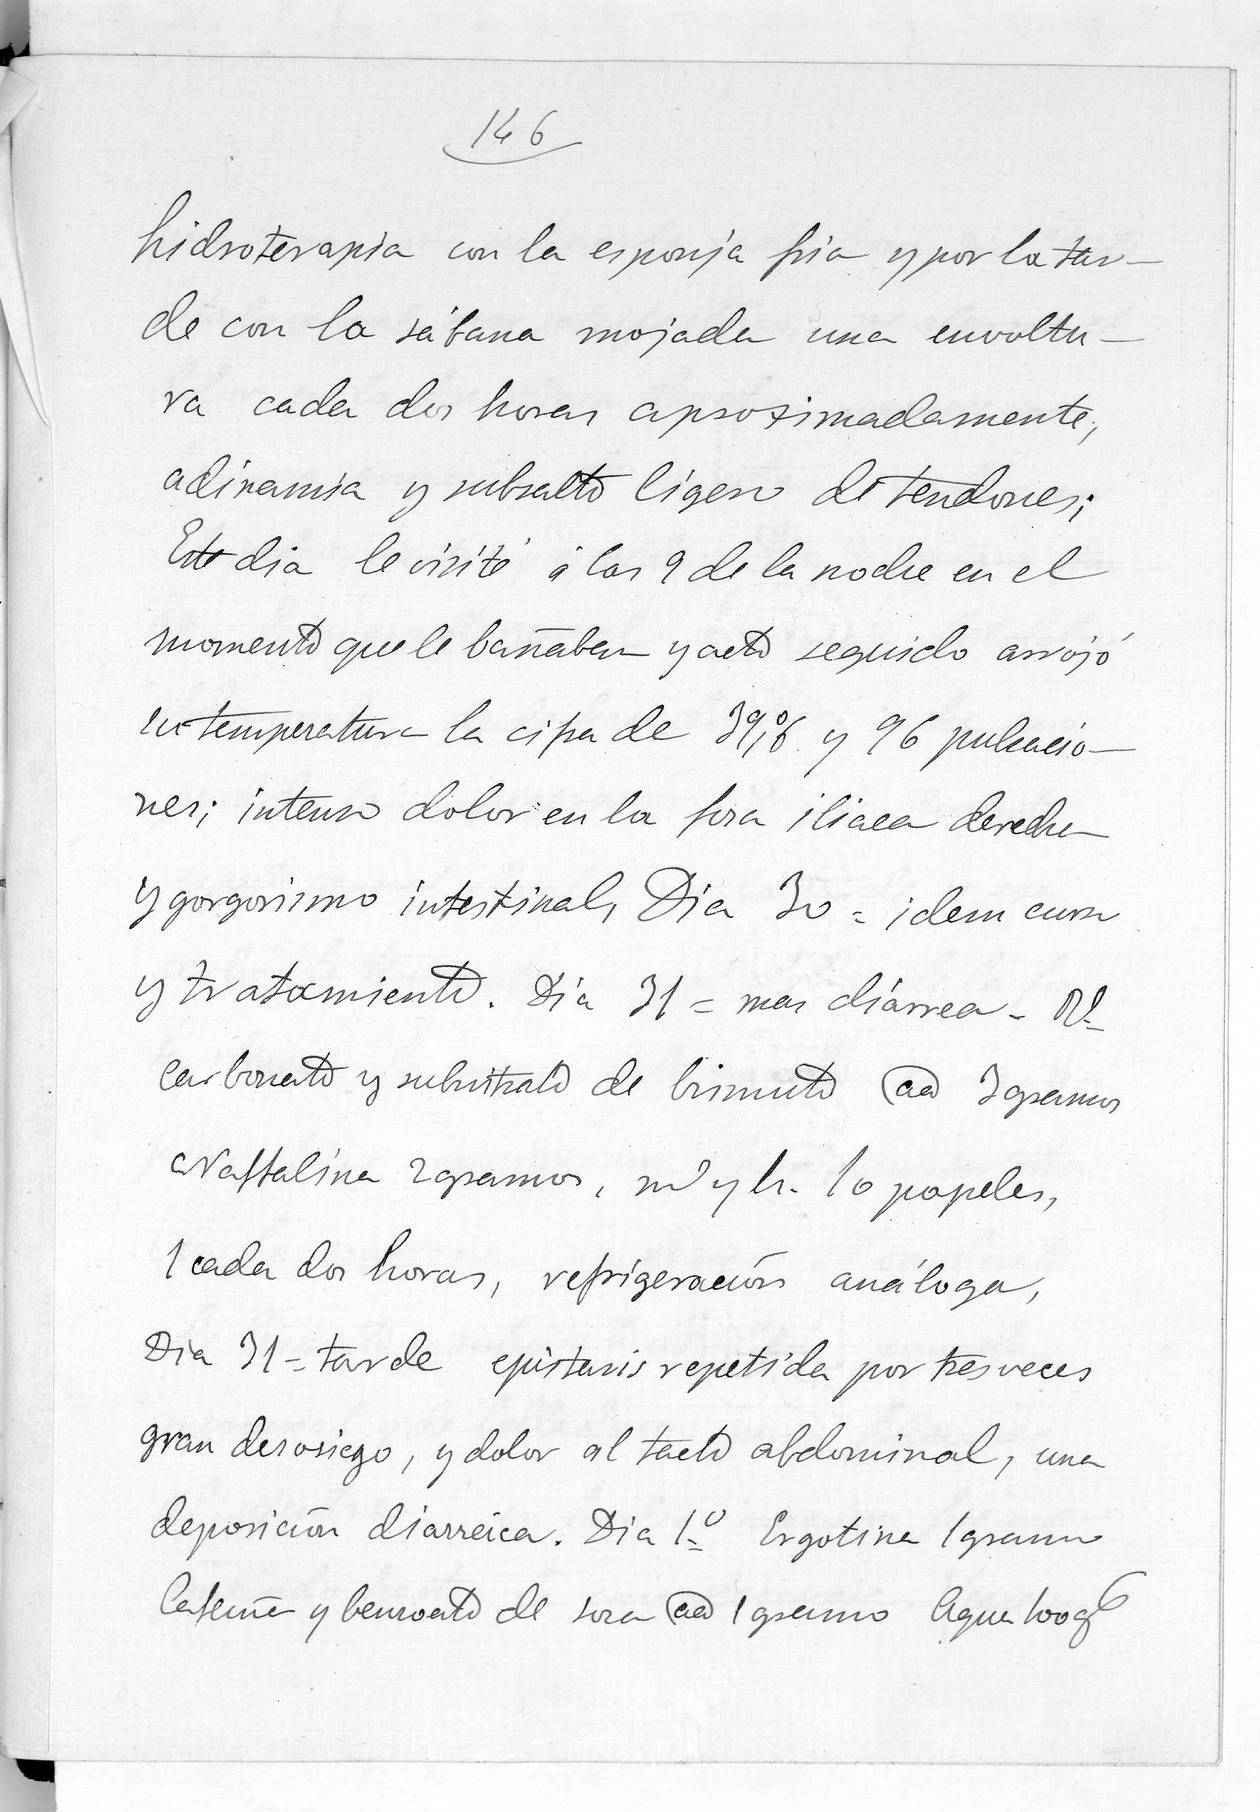 146
hidroterapia con la esponja fria y por la tar-
de con la sábana mojada una envoltu-
ra cada dos horas aproximadamente,
adinamia y subsalto ligero de tendones;
Este dia le visité á las 9 de la noche en el
momento que le bañaban y acto seguido arrojó
su temperatura la cifra de 39,º6 y 96 pulsacio-
nes; intenso dolor en la fosa iliaca derecha
y gorgorismo intestinal, Dia 30 = idem curso
y tratamiento. Dia 31 = mas diarrea -
carbonato y subnitrato de bismuto aa 3 gramos
Naftalina 2 gramos, m y h. 10 papeles,
1 cada dos horas, refrigeración análoga,
Dia 31 = tarde epistaxis repetida por tres veces
gran desosiego, y dolor al tacto abdominal, una
deposición diarreica. Dia 1.º Ergotina 1 gramo
Cafeina y benzoato de sosa aa 1 gramo Agua 100 g